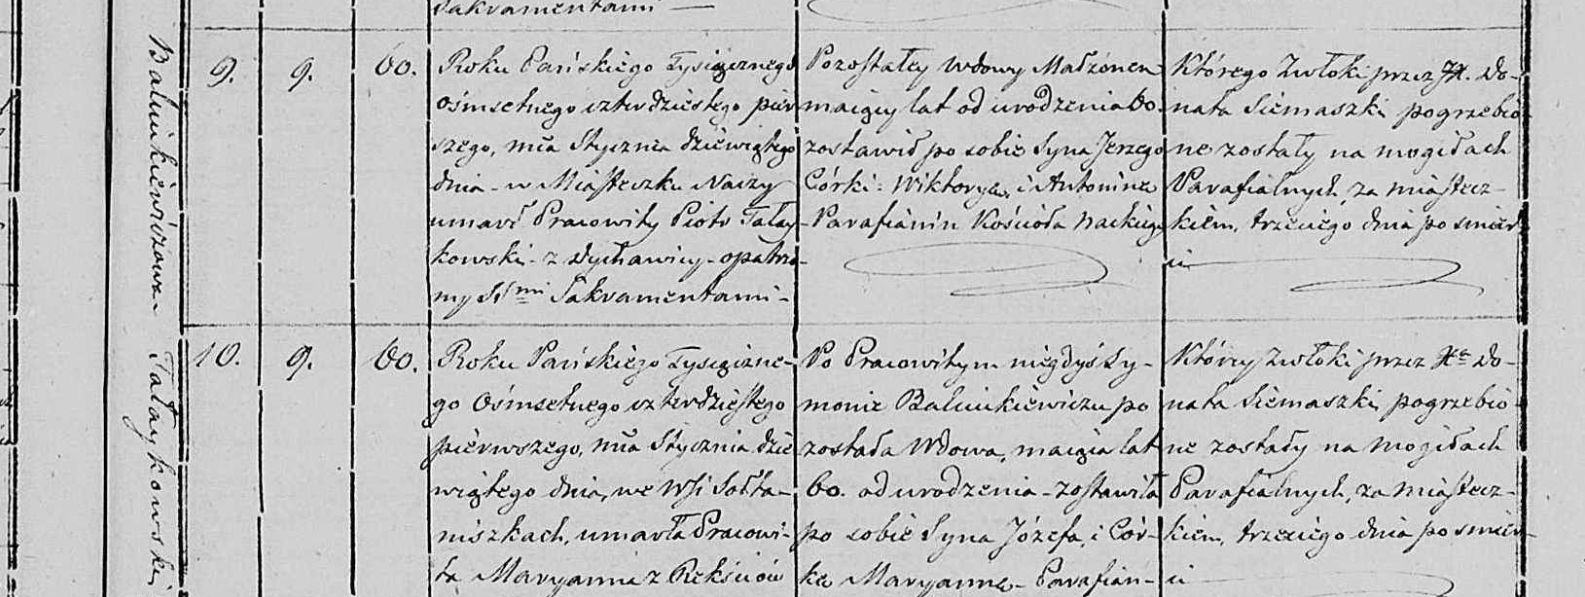 Sakramentami —
9. 9. 60.
Roku Pańskiego Tysiącznego
ośmsetnego czterdziestego pier
szego, mca Stycznia dziewiątego
dnia - w Miasteczku Naczy
umarł Pracowity Piotr Tałay
kowski - z dychawicy - opatrzo-
ny SSmi Sakramentami -
Pozostałey wdowy Małżonek
maiący lat od urodzenia 60.
zostawił po sobie Syna Jerzego
Córki: Wiktoryą, i Antoninę
Parafianin Kościoła Nackiego
Którego Zwłoki przez X. Do-
nata Siemaszki pogrzebio-
ne zostały na mogiłach
Parafialnych, za miastecz-
kiem, trzeciego dnia po śmier
ci
10. 9. 60.
Roku Pańskiego Tysiączne-
go Ośmsetnego czterdziestego
pierwszego, mca Stycznia dzie
wiątego dnia, we Wsi Sołta-
niszkach, umarła Pracowi-
ta Maryanna z Rekściów
Po Pracowitym niegdyś Sy-
monie Balinkiewiczu po
została Wdowa, maiąca lat
60. od urodzenia - zostawiła
po sobie Syna Józefa, i Cór-
kę Maryannę - Parafian-
Którey zwłoki przez Xa Do-
nata Siemaszki pogrzebio-
ne zostały na mogiłach
Parafialnych, za miastecz-
kiem, trzeciego dnia po śmier-
ci
Balinkiewiczowa
Tałaykowski